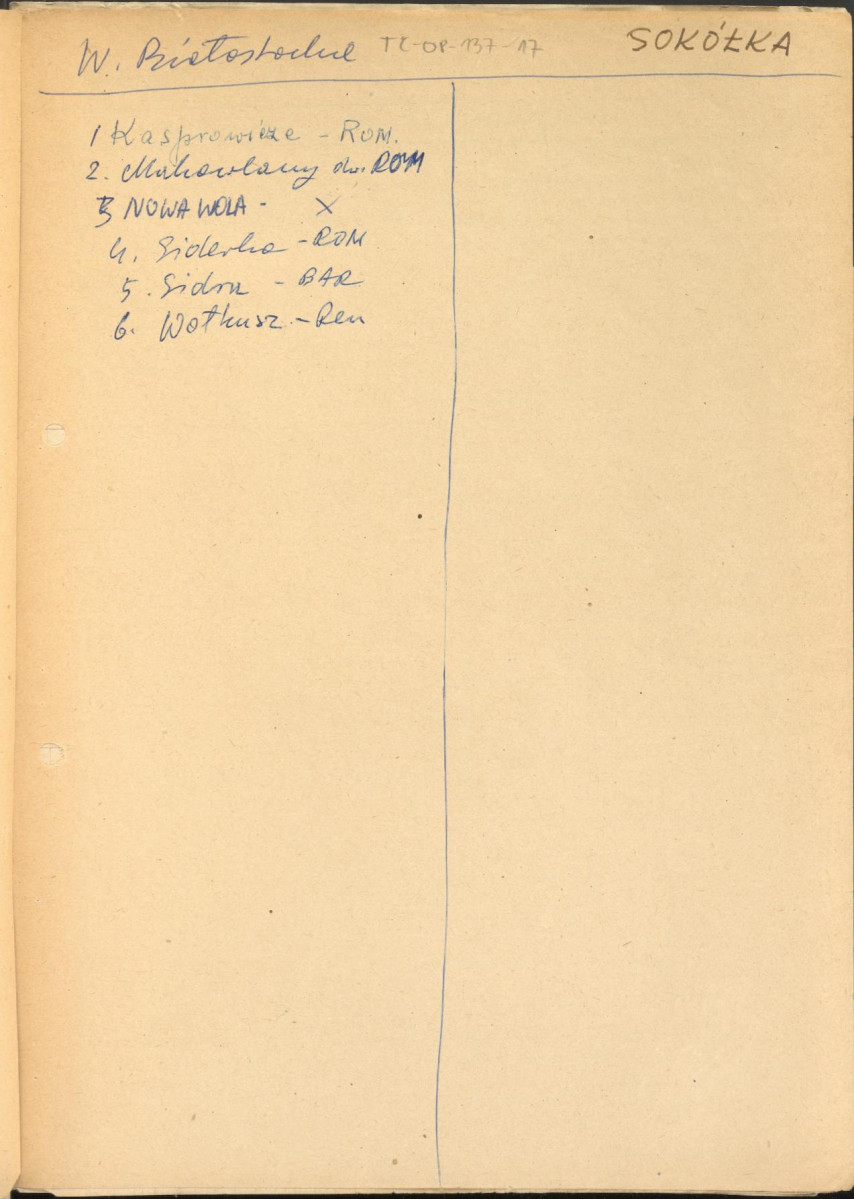 W. Białostockie TK-OP-137-17 SOKÓŁKA
1 Kasprowicze - ROM.
2. Makowlany dw. ROM
3 NOWA WOLA - X
4. Siderka - ROM
5. Sidra - BAR
6. Wołkusz - Ren